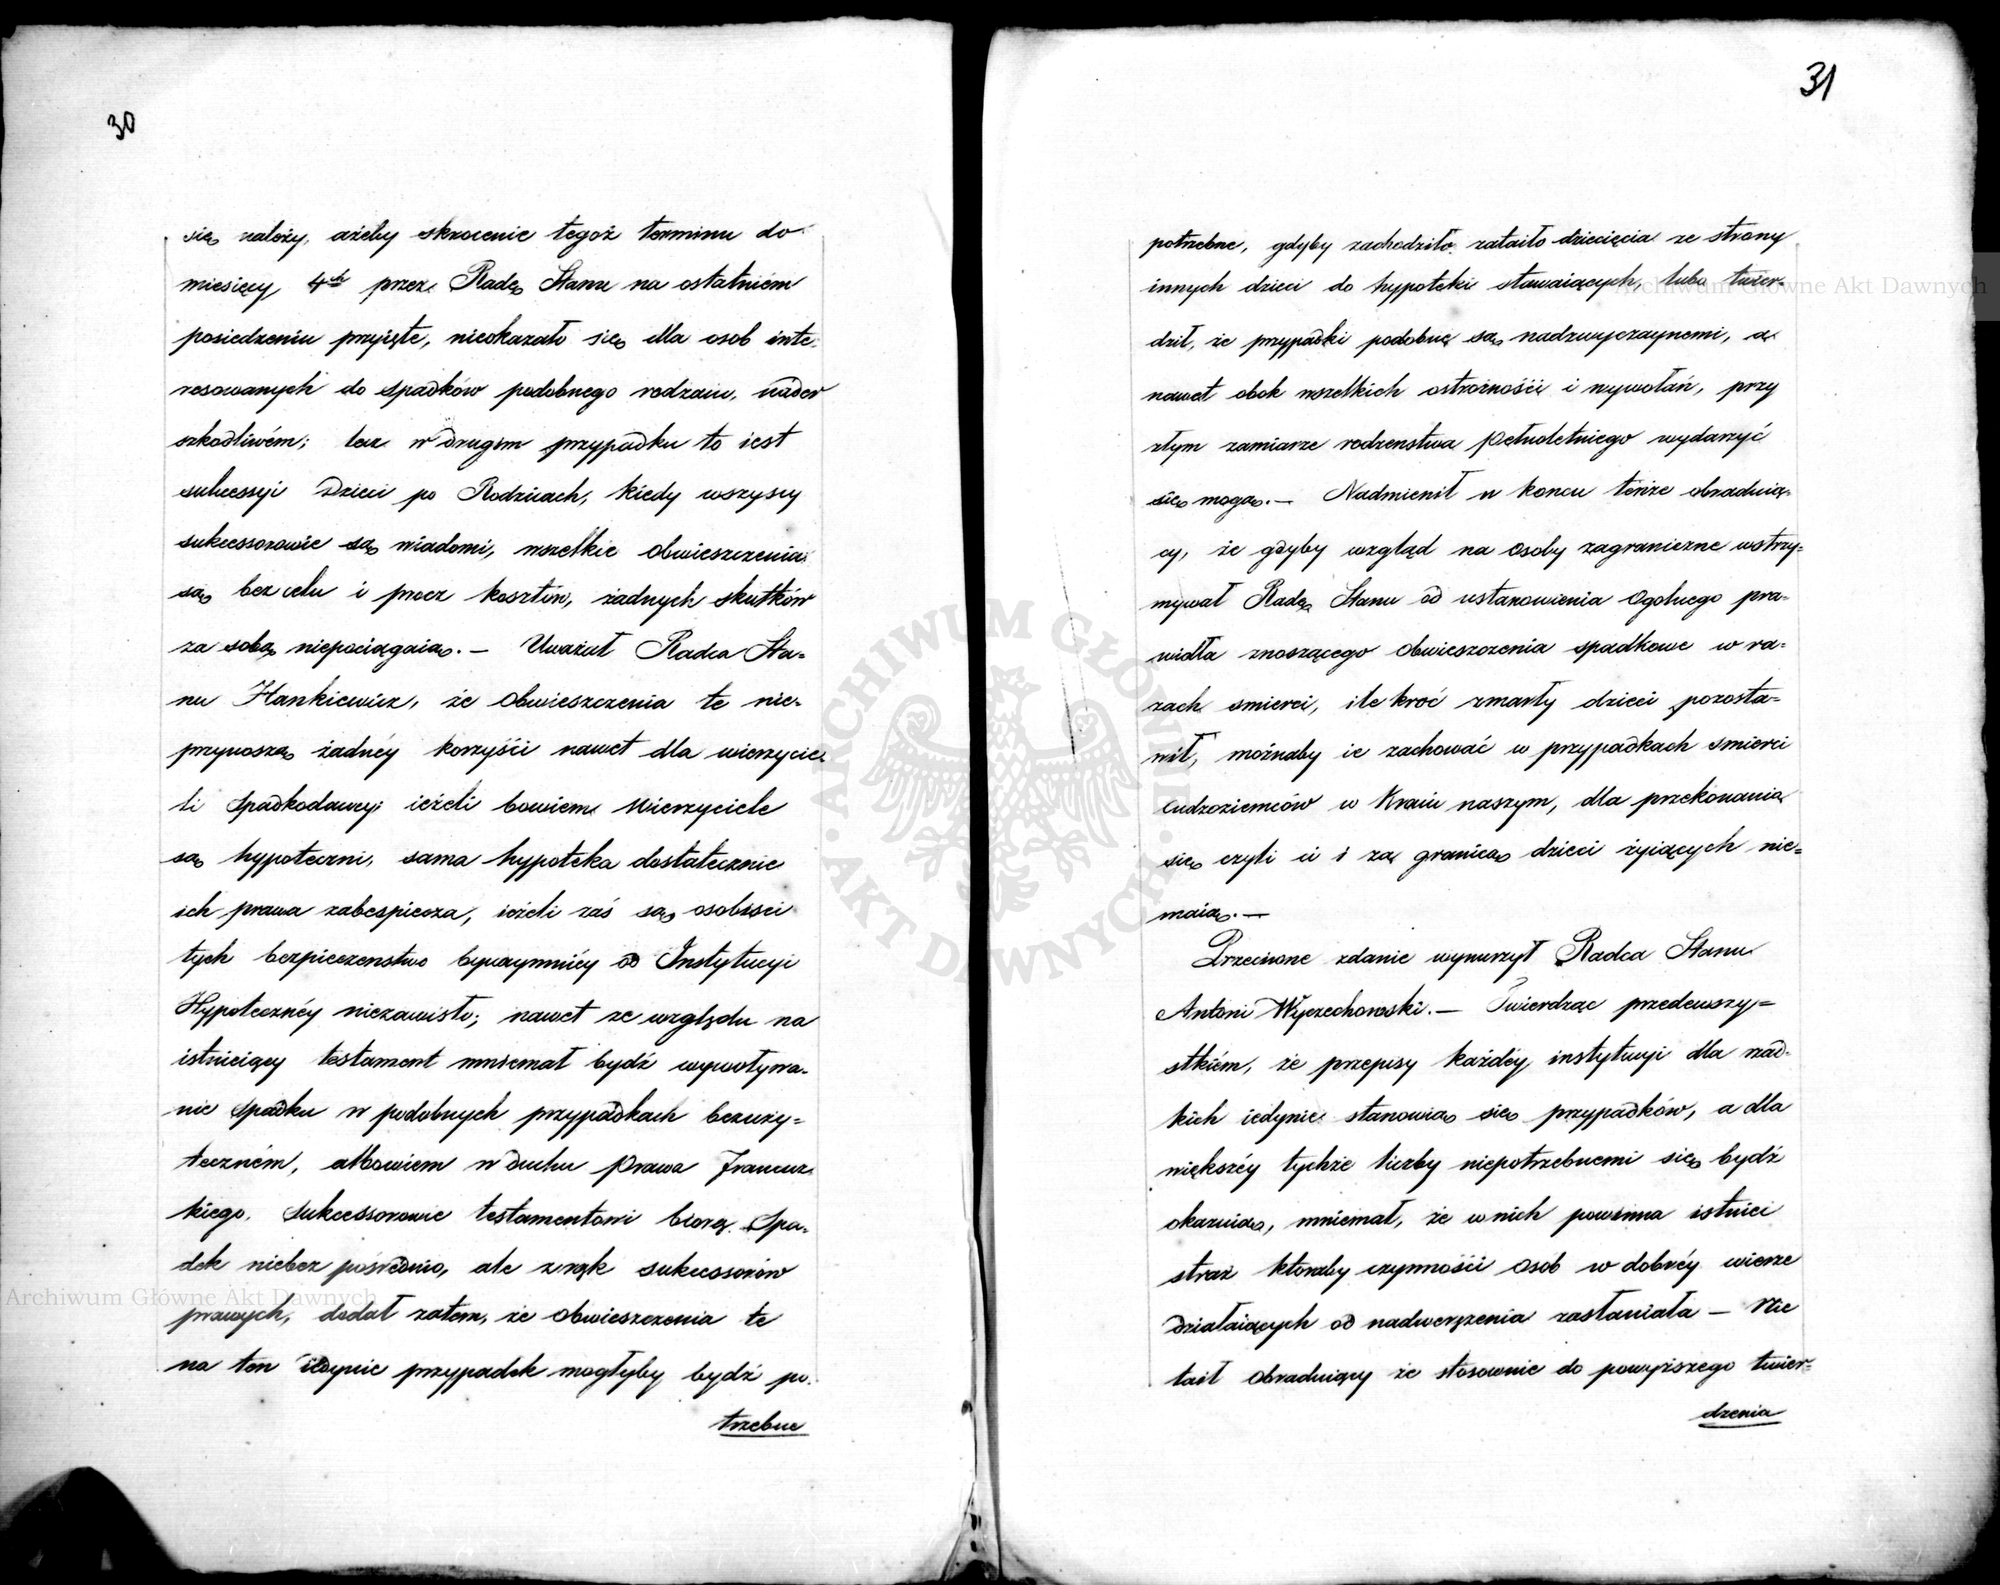 30
się należy, ażeby skrocenie tegoż terminu do
miesięcy 4ch przez Radę Stanu na ostatniém
posiedzeniu przyięte, nieokazało się dla osob inte-
resowanych do spadków podobnego rodzaiu, nader
szkodliwém; lecz w drugim przypadku to iest
sukcessyi Dzieci po Rodzicach, kiedy wszyscy
sukcessorowie są wiadomi, wszelkie obwieszczenia
są bez celu i procz kosztów, żadnych skutków
za sobą niepociągaią. — Uważał Radca Sta=
nu Hankiewicz, że obwieszczenia te nie-
przynoszą żadnéy korzyści nawet dla wierzycie-
li Spadkodawcy; ieżeli bowiem Wierzyciele
są hypoteczni, sama hypoteka dostatecznie
ich prawa zabespiecza, ieżeli zaś są osobisci
tych bezpieczenstwo bynaymniéy od Instytucyi
Hypotecznéy niezawisło; nawet ze względu na
istnieiący testament mniemał bydź wywoływa-
nie Spadku w podobnych przypadkach bezuży=
teczném, albowiem w duchu prawa Francuz-
kiego, Sukcessorowie testamentowi biorą Spa-
dek niebezpośrednio, ale z rąk sukcessorów
prawych, dodał zatem, że obwieszczenia te
na ten iedynie przypadek mogłyby bydź po-
trzebne
31
potrzebne, gdyby zachodziło zataiło dziecięcia ze strony
innych dzieci do hypoteki stawaiących, lubo twier-
dził, że przypadki podobne są nadzwyczaynemi, a
nawet obok wszelkich ostrożności i wywołań, przy
złym zamiarze rodzenstwa pełnoletniego wydarzyć
się mogą. — Nadmienił w koncu tenże obraduią-
cy, że gdyby wzgląd na osoby zagraniczne wstrzy=
mywał Radę Stanu od ustanowienia Ogolnego pra-
widła znoszącego obwieszczenia spadkowe w ra-
zach smierci, ile kroć zmarły dzieci pozosta=
wił, możnaby ie zachować w przypadkach smierci
cudzoziemców w Kraiu naszym, dla przekonania
się czyli ci i za granicą dzieci żyiących nie=
maią. —
Przeciwne zdanie wynurzył Radca Stanu
Antoni Wyczechowski. — Twierdząc przedewszy=
stkiém, że przepisy każdéy instytucyi dla rzad-
kich iedynie stanowią się przypadków, a dla
większéy tychże liczby niepotrzebnemi się bydź
okazuią, mniemał, że w nich powinna istnieć
straż ktoraby czynności osób w dobréy wierze
działaiących od nadwerężenia zasłaniała — Nie
taił Obraduiący że stosownie do powyższego twier=
dzenia
Archiwum Główne Akt Dawnych
Archiwum Główne Akt Dawnych
ARCHIWUM GŁÓWNE AKT DAWNYCH